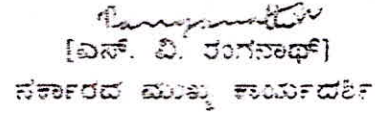 [ಎಸ್. ವಿ. ರಂಗನಾಥ್]
ಸರ್ಕಾರದ ಮುಖ್ಯ ಕಾರ್ಯದರ್ಶಿ